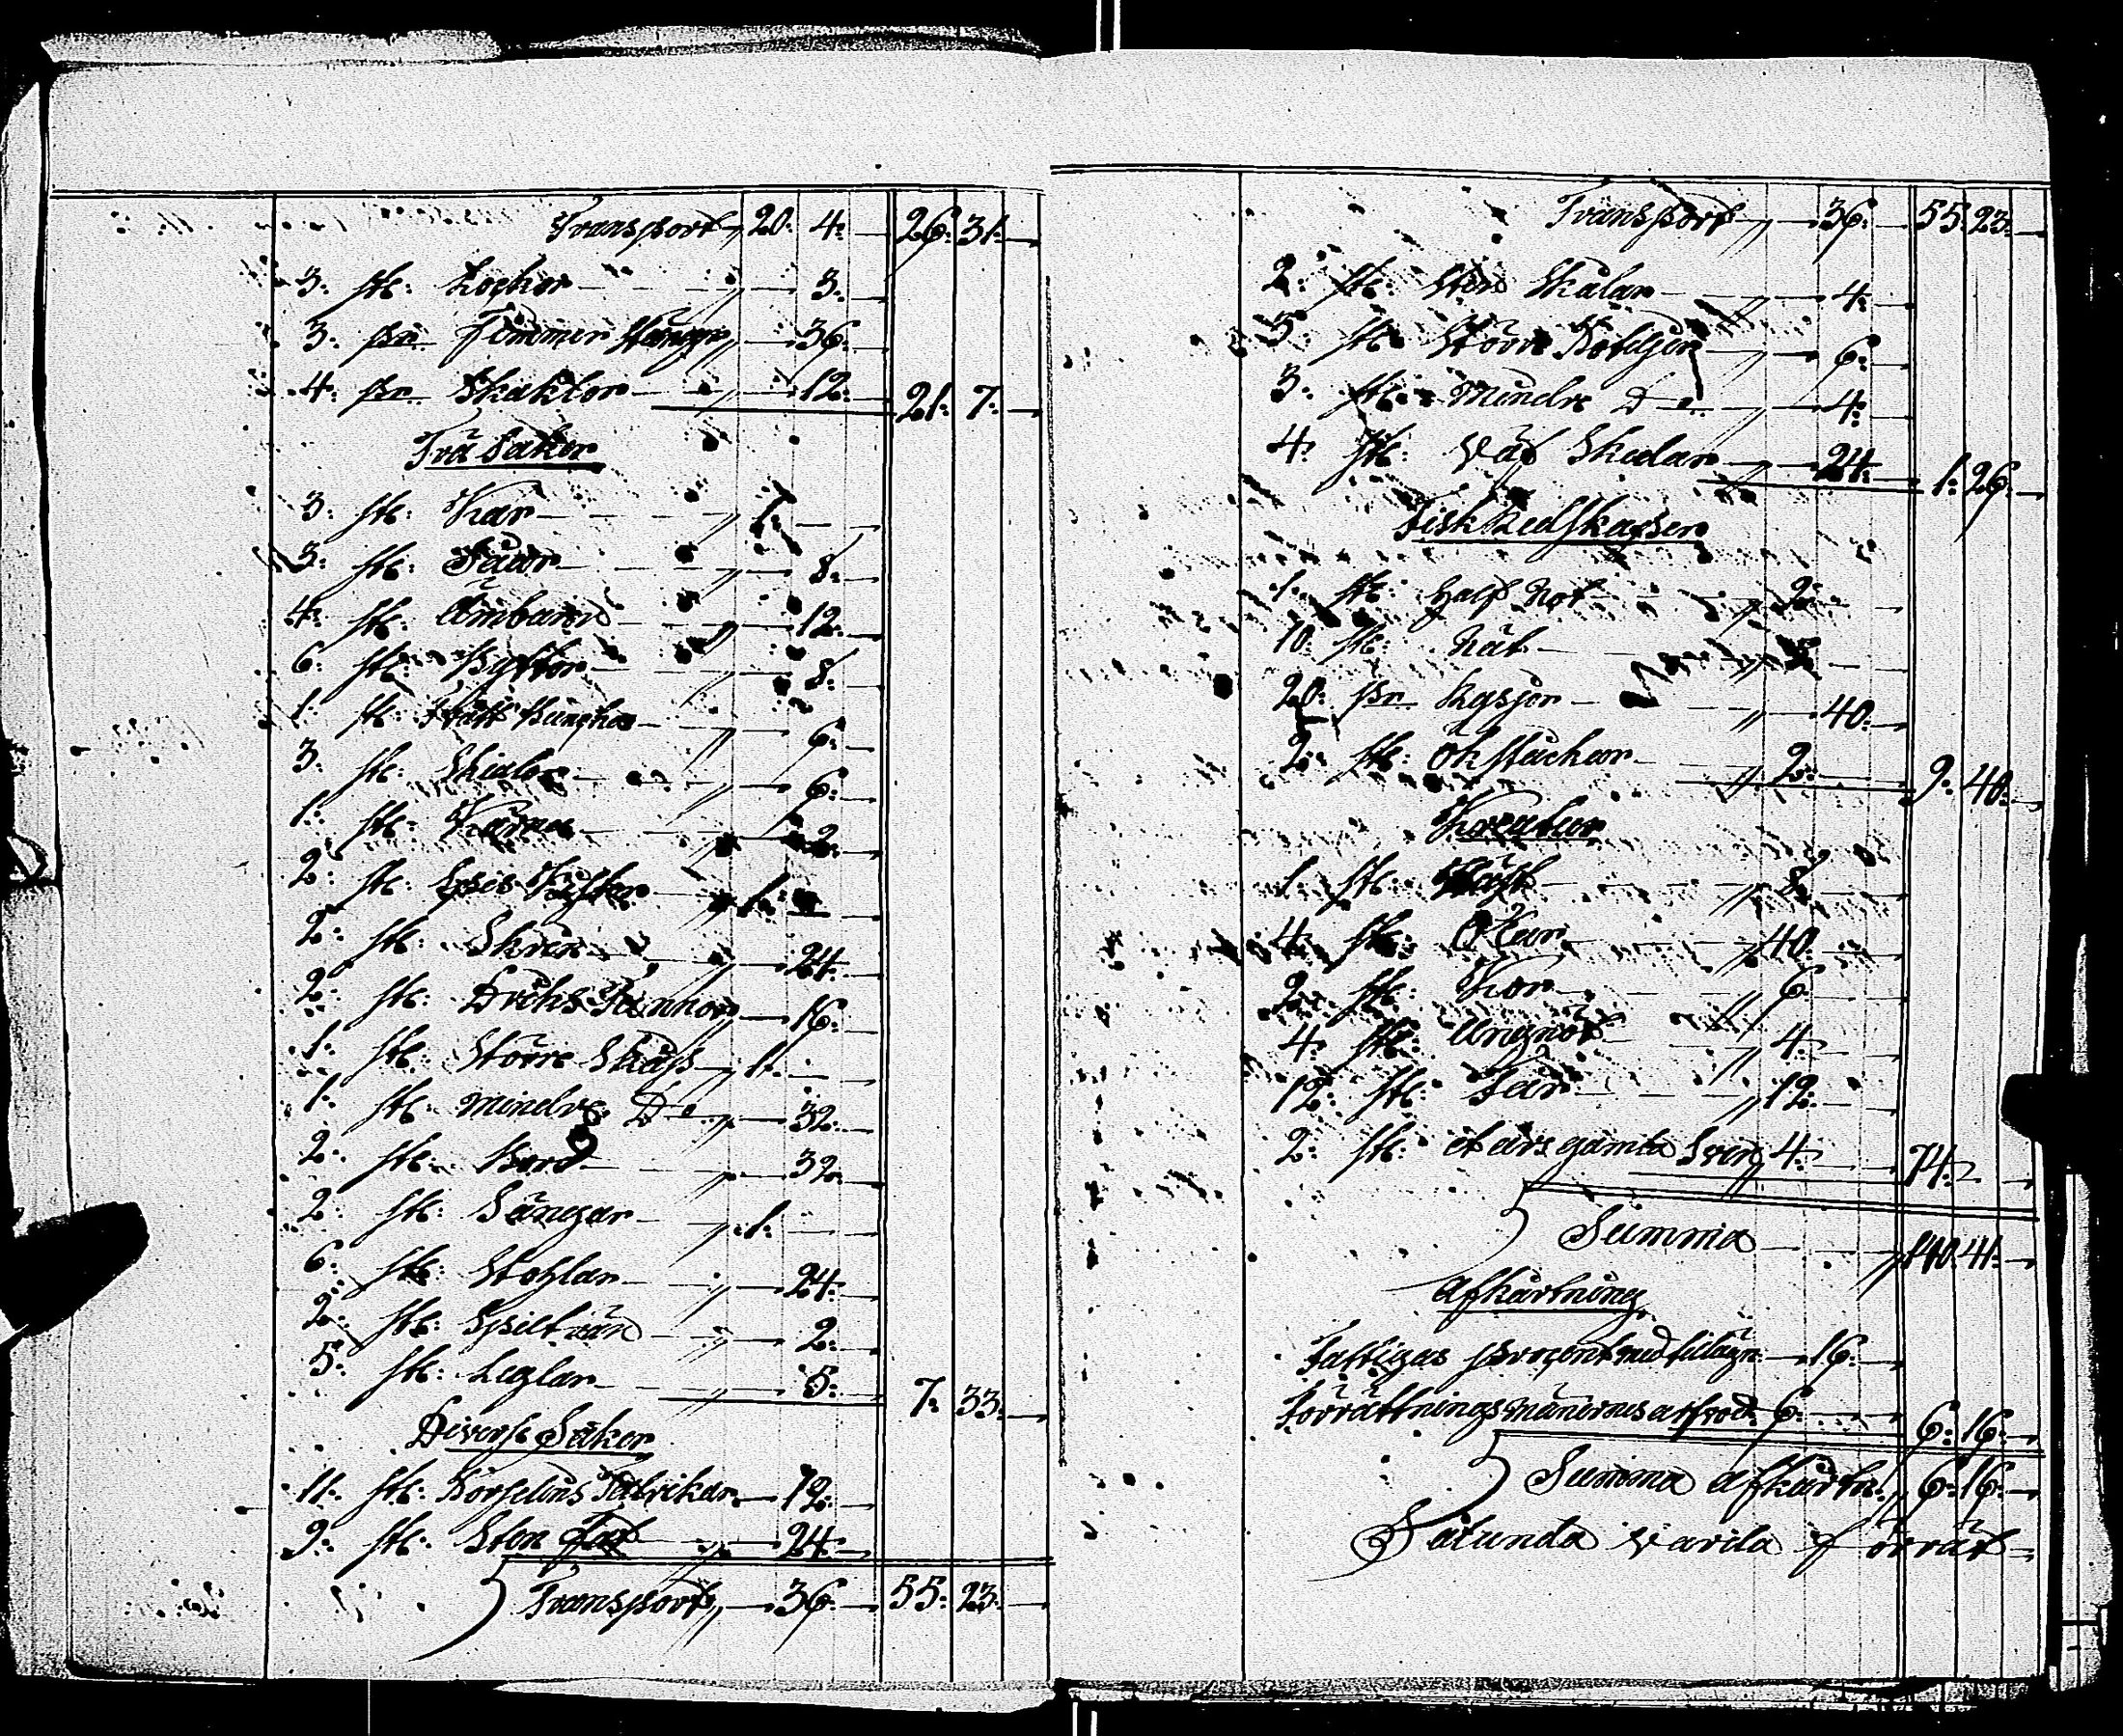 Transport " 20: 4: — 26: 31: —
3: st: Lockor — " — 3: —
3: pr Tömmer Stänger " — 36: —
4: pr Skaklor — " — 12: — 21: 7: —
Trä Saker
3: st: Kar — " 1: — —
3: st: Såar — " — 8: —
4: st: Ämbaren — " — 12: —
6: st: Byttor — " — 8: —
1: st: Tvätt Bunka — " — 6: —
3: st: Skålor — " — 6: —
1: st: Kärna — " — 2: —
2: st: Spis Kistor — " 1: — —
2: st: Skrin — " — 24: —
2: st: Dricks Tunnor " — 16: —
1: st: Större Skåp — " 1: — —
1: st: Mindre D:o — " — 32: —
2: st: Bord — " — 32: —
2: st: Sängar — " 1: — —
6: st: Stohlar — " — 24: —
2: st: Spiltrån — " — 2: —
5: st: Leglar — " — 5: — 7: 33: —
Diverse Saker
11: st: Porselins Fabrikar — 12: —
9: st: Sten Fat — " — 24: —
Transport " — 36: — 55: 23: —
Transport " — 36: — 55: 23: —
2: st: Sten Skålar — " — 4: —
3: st: Större Boteljer " — 6: —
3: st: Mindre D:o " — 4: —
4: st: Väf Skedar — " — 24: — 1: 26: —
Fisk Redskapen
1: st: Half Not — " 2: — —
10: st: Nät — " 5 — —
20: pr Rysjor — " — 40: —
2: st: Ökstäckar — " 2: — — 9: 40: —
Kreatur
1: st: Häst — " 8 — —
4: st: Oxar — " 40: — —
2: st: Kor — " 6: — —
4: st: Ungnöt — " 4: — —
12: st: Får — " 12: — —
2: st: et års gamla Svin 4: — — 74: — —
Summa " 140: 41: —
Afkårtning
Fattigas procent med tilägn — 16: —
Förrättnings Mänernes arfvod: 6: — — 6: 16: —
Summa Afkårtn: " 6: 16: —
Sålunda varda förrät=